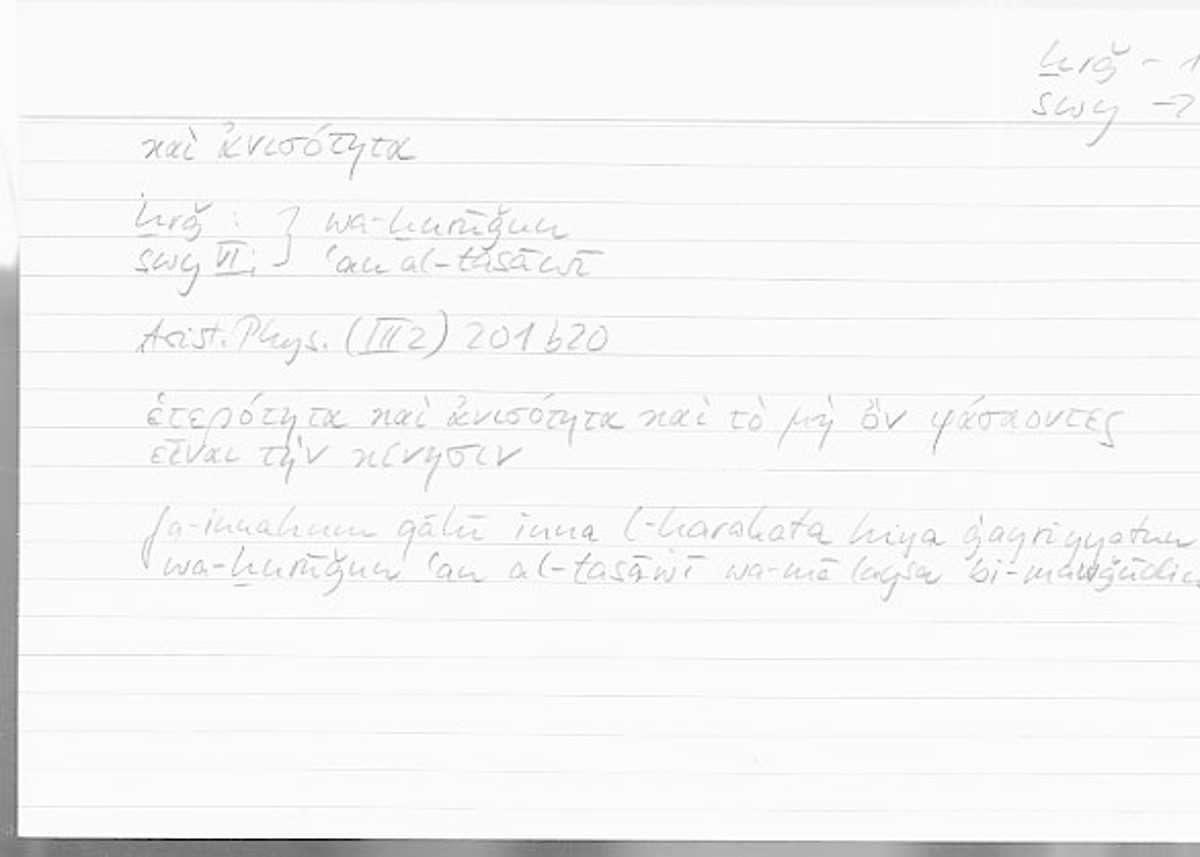 ḫrǧ - 1
swy -?
καὶ ἀνισότητα
ḫrǧ : } wa-ḫurūǧun
swy VI: } ʿan al-tasāwī
Arist. Phys. (III 2) 201 b20
ἑτερότητα καὶ ἀνισότητα καὶ τὸ μὴ ὂν φάσκοντες
εἶναι τὴν κίνησιν
fa-innahum qālū inna l-ḥarakata hiya ġayriyyatun
wa-ḫurūǧun ʿan al-tasāwī wa-mā laysa bi-mawǧūdin